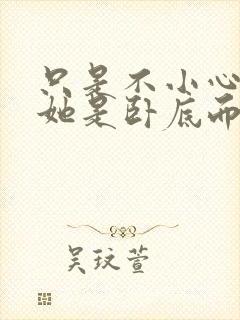 只是不小心
她是卧底而
吴玟萱